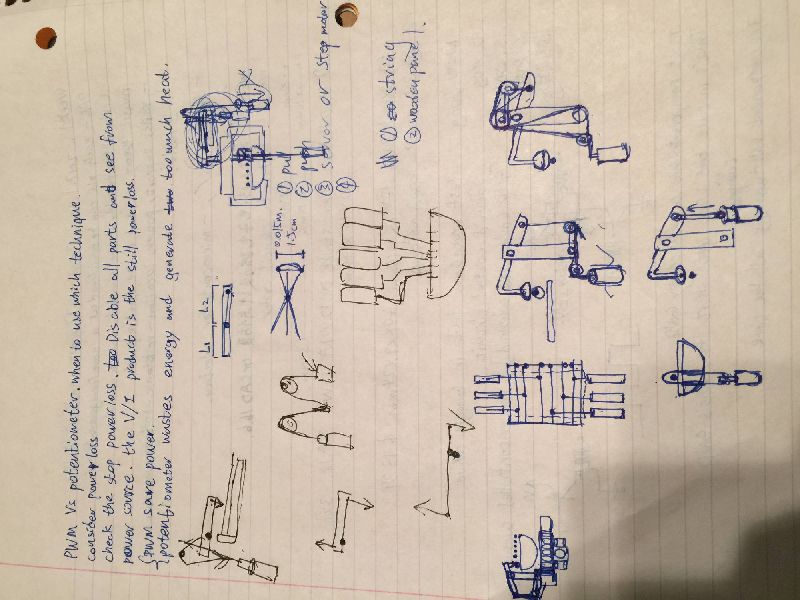 PWM Vs potentiometer. when to use which technique.
consider power loss
check the stop power loss. Disable all parts and see from
power source. the V/I product is the still power loss.
{ PWM save power.
{ potentiometer wastes energy and generate too much heat.
① pull
② push
③ servor or step motor
④
① string
② wooden panel.
L1 L2
0.015m.
1.5cm